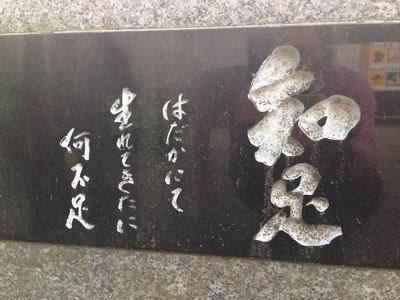 知足
はだかにて
生れてきたに
何不足